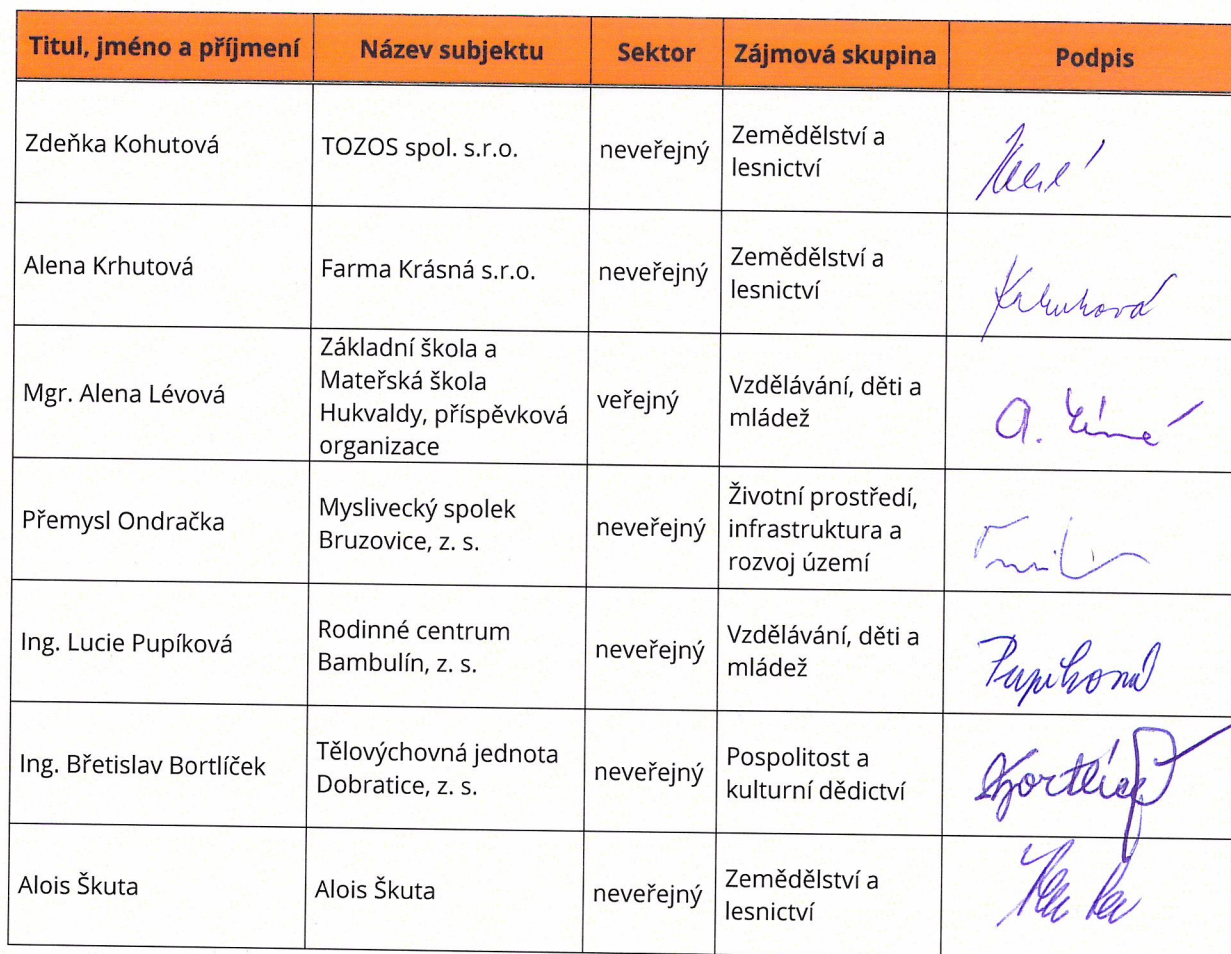 Titul, jméno a příjmení Název subjektu Sektor Zájmová skupina Podpis
Zdeňka Kohutová TOZOS spol. s.r.o. neveřejný Zemědělství a
lesnictví
Alena Krhutová Farma Krásná s.r.o. neveřejný Zemědělství a
lesnictví
Krhutová
Mgr. Alena Lévová Základní škola a
Mateřská škola
Hukvaldy, příspěvková
organizace
veřejný Vzdělávání, děti a
mládež
Přemysl Ondračka Myslivecký spolek
Bruzovice, z. s.
neveřejný Životní prostředí,
infrastruktura a
rozvoj území
Ing. Lucie Pupíková Rodinné centrum
Bambulín, z. s.
neveřejný Vzdělávání, děti a
mládež
Pupíková
Ing. Břetislav Bortlíček Tělovýchovná jednota
Dobratice, z. s.
neveřejný Pospolitost a
kulturní dědictví
Alois Škuta Alois Škuta neveřejný Zemědělství a
lesnictví